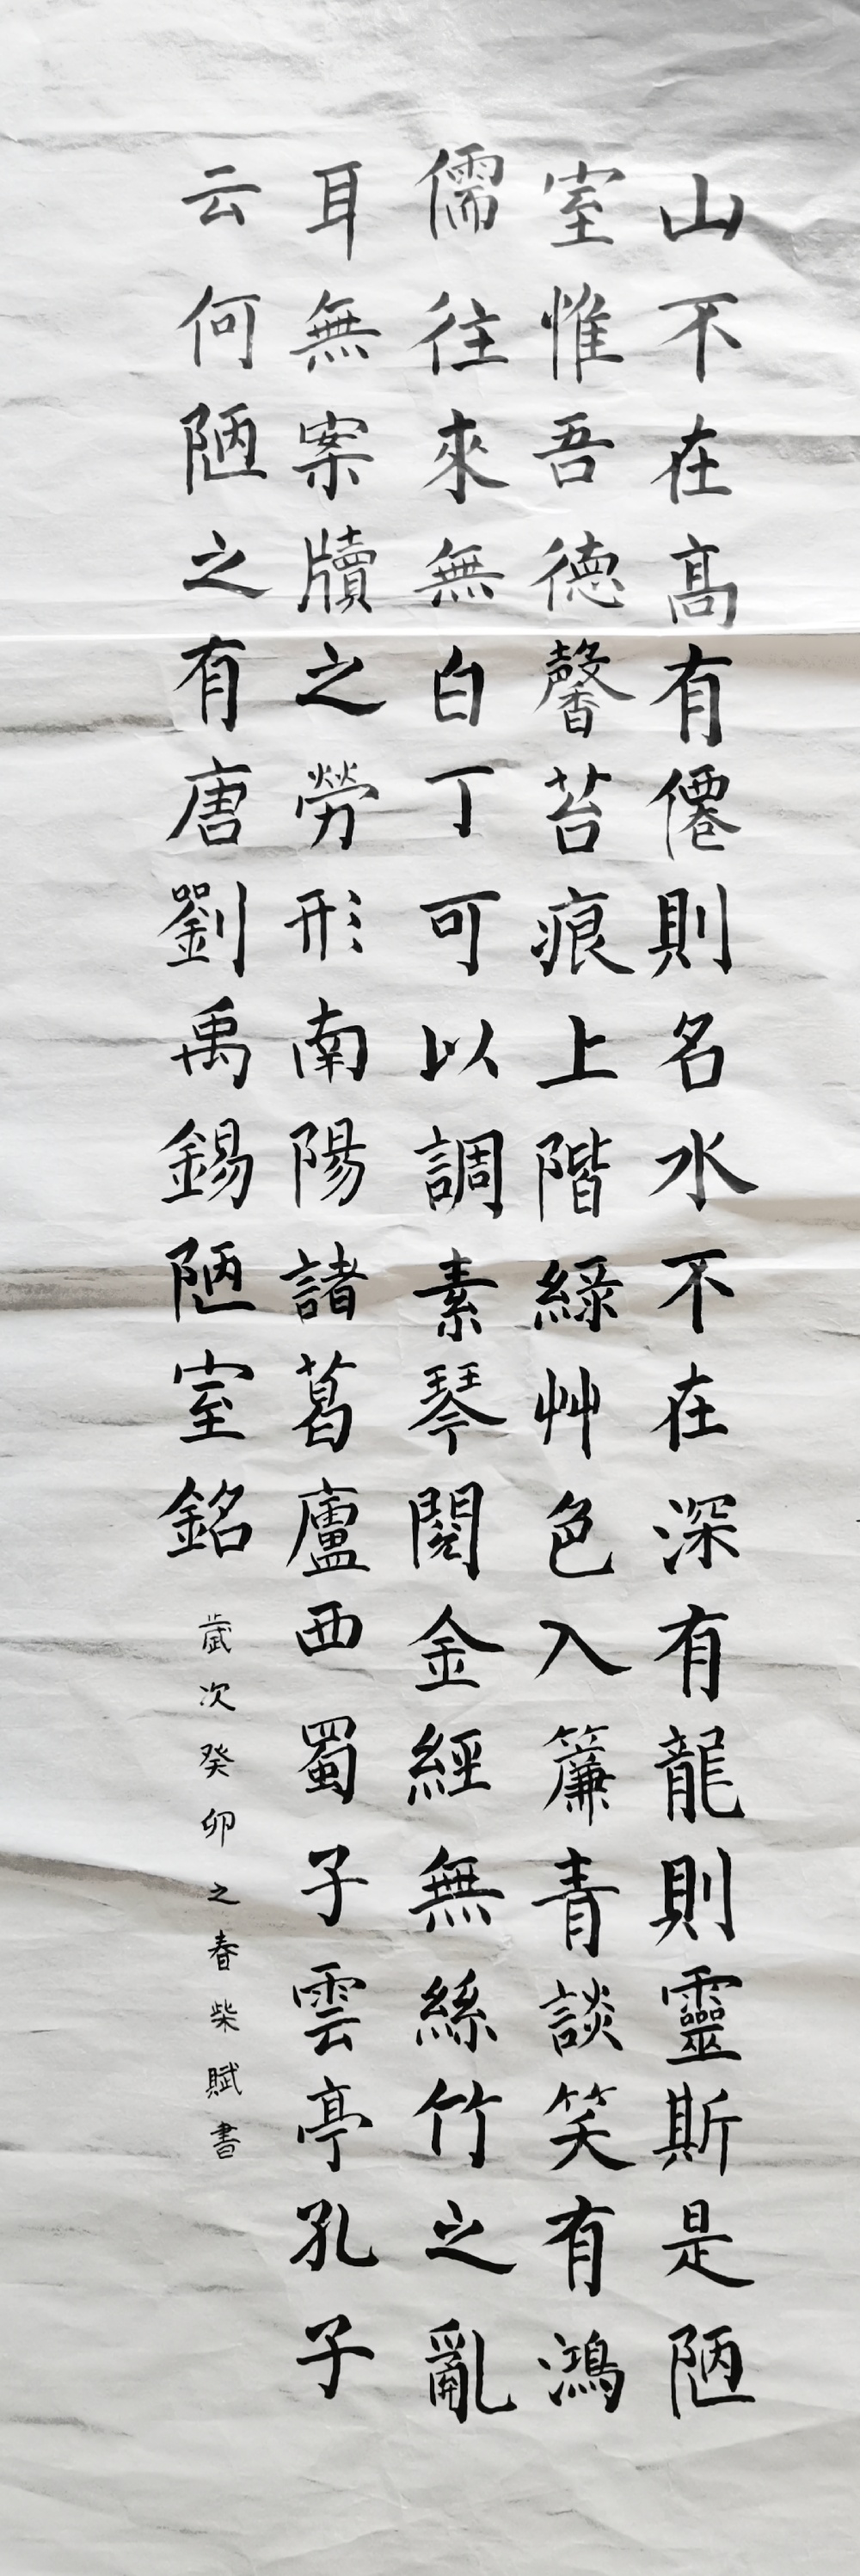 山不在高有僊則名水不在深有龍則靈斯是陋
室惟吾德馨苔痕上階綠艸色入簾青談笑有鴻
儒往來無白丁可以調素琴閱金經無絲竹之亂
耳無案牘之勞形南陽諸葛廬西蜀子雲亭孔子
云何陋之有唐劉禹錫陋室銘
歲次癸卯之春柴賦書